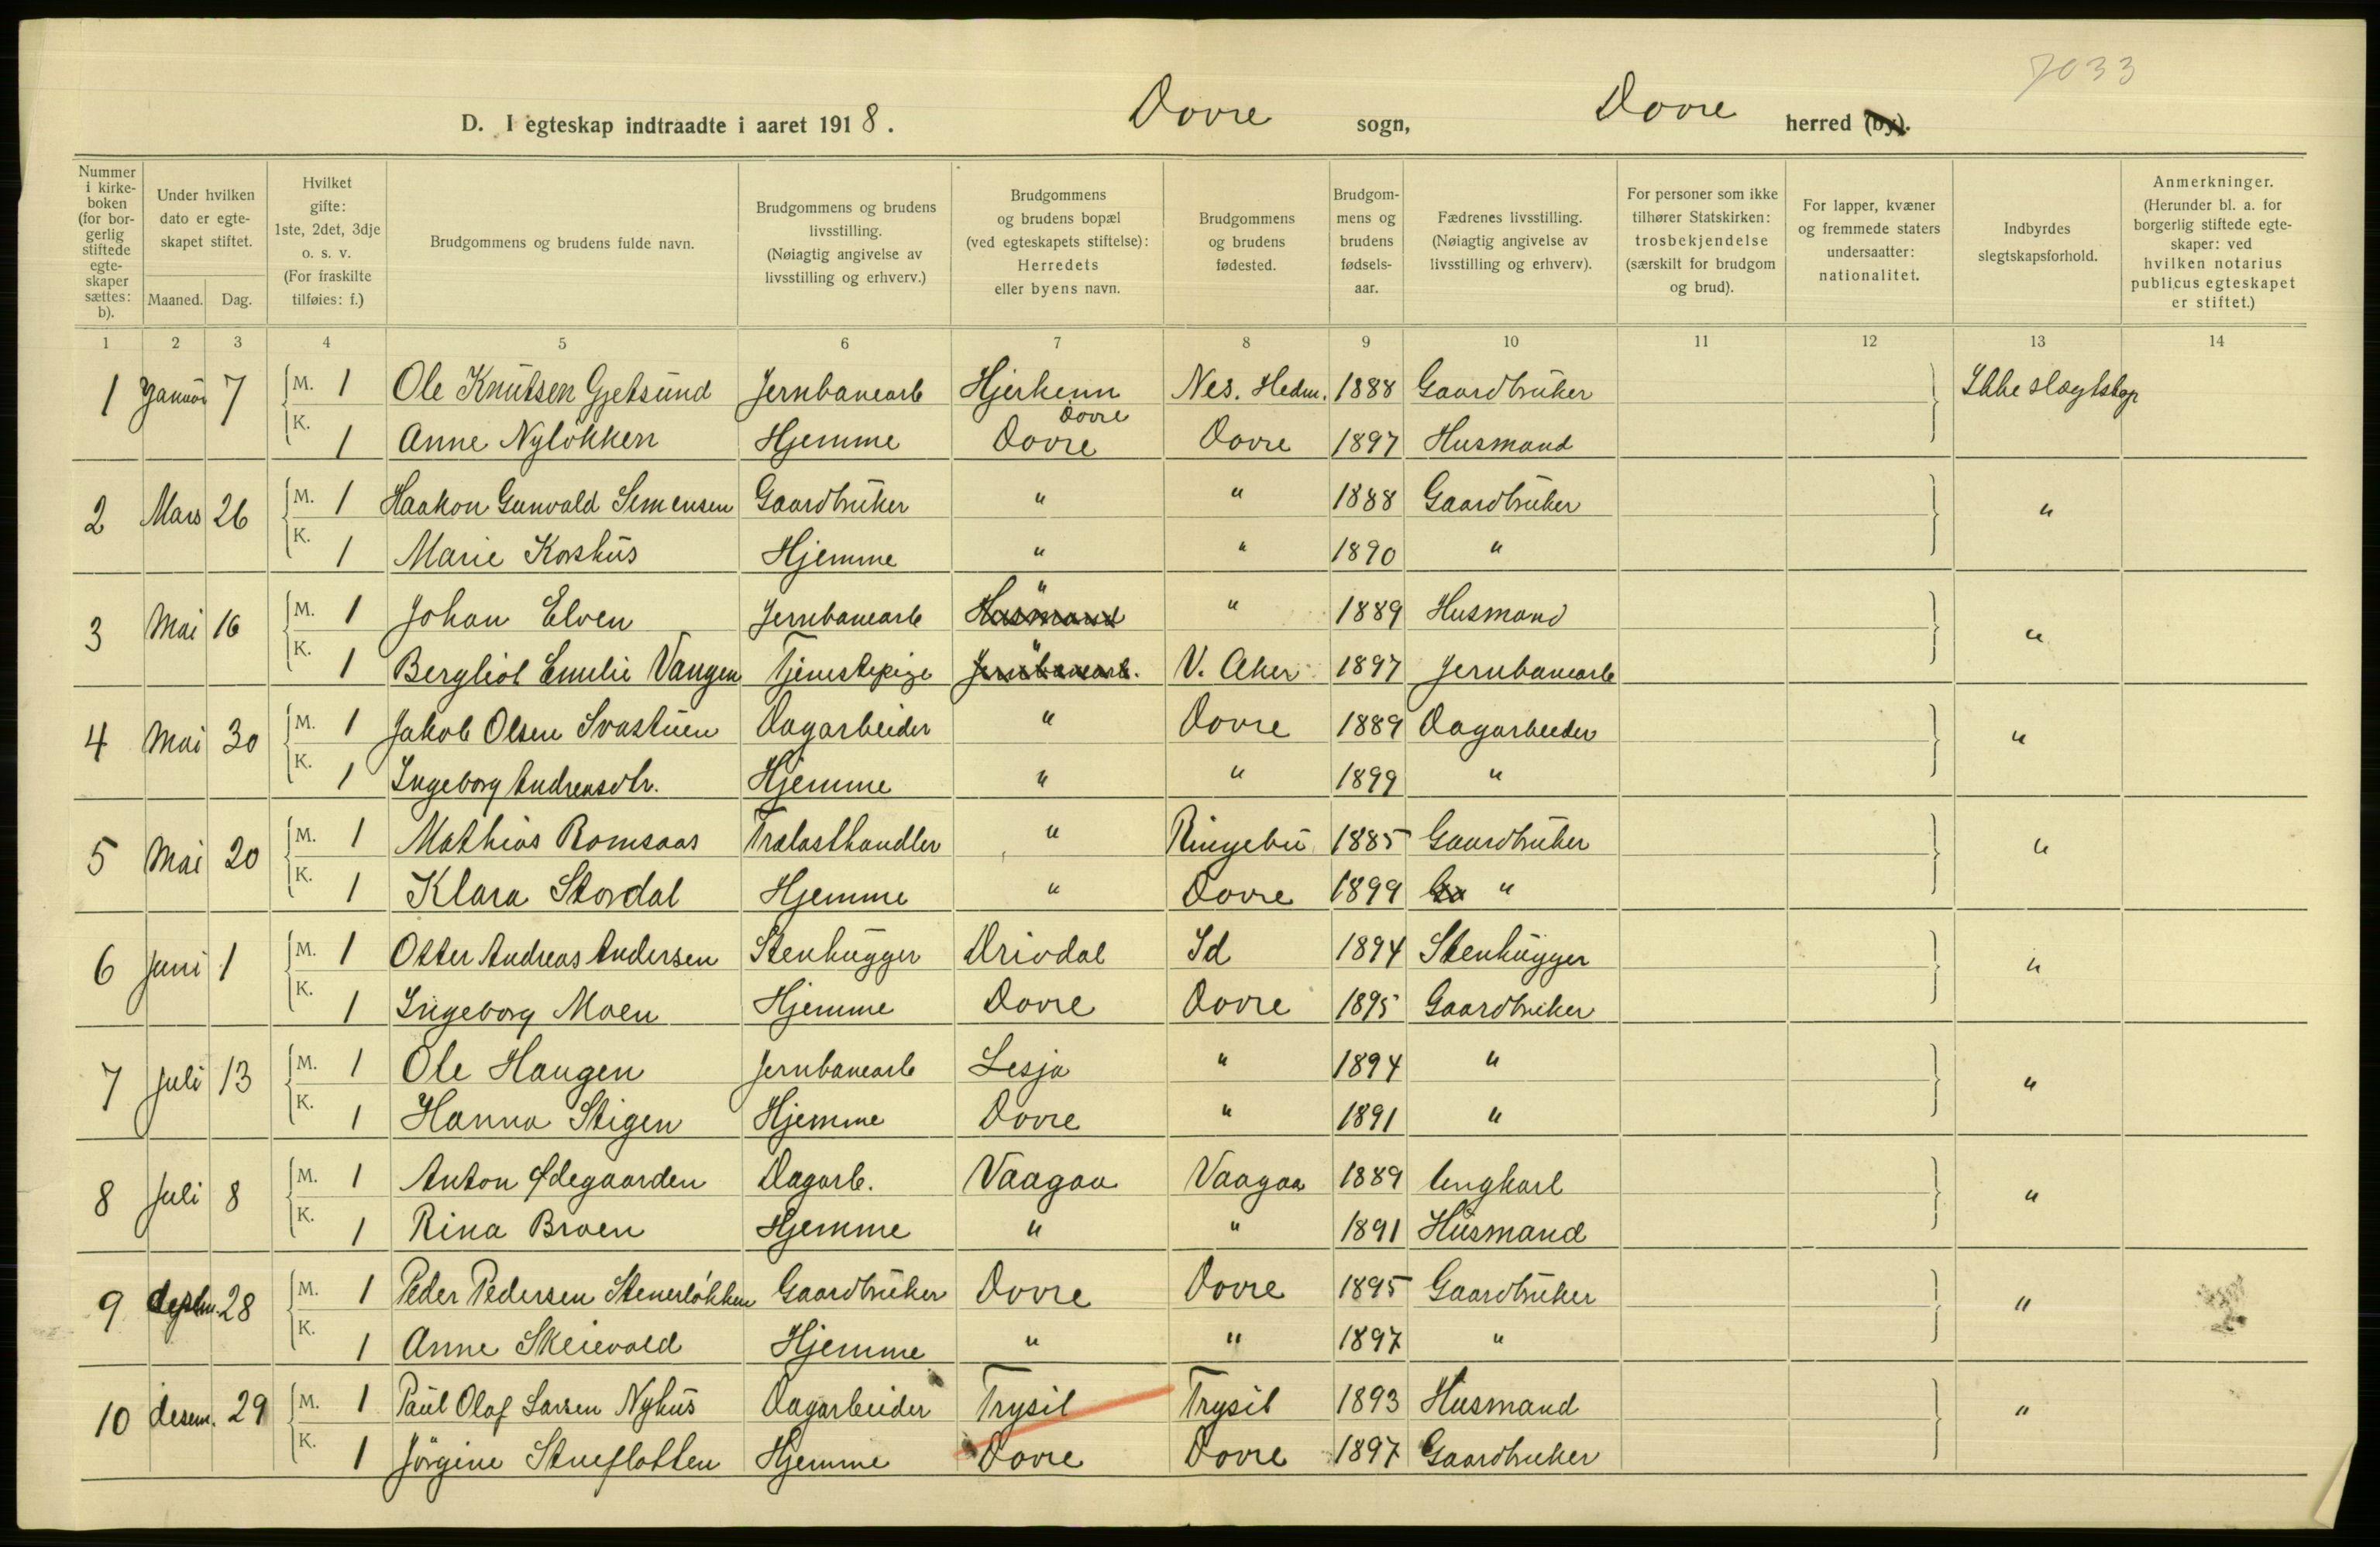 7033
D. I egteskap indtraadte i aaret 1918. Dovre sogn, Dovre herred (by).
Nummer i kirkeboken (for borgerlig stiftede egteskaper sættes: b). Under hvilken dato er egteskapet stiftet. Maaned. Dag. Hvilket gifte: 1ste, 2det, 3dje o. s. v. (For fraskilte tilføies: f.) Brudgommens og brudens fulde navn. Brudgommens og brudens livsstilling. (Nøiagtig angivelse av livsstilling og erhverv.) Brudgommens og brudens bopæl (ved egteskapets stiftelse): Herredets eller byens navn. Brudgommens og brudens fødested. Brudgommens og brudens fødselsaar. Fædrenes livsstilling. (Nøiagtig angivelse av livsstilling og erhverv). For personer som ikke tilhører Statskirken: trosbekjendelse (særskilt for brudgom og brud). For lapper, kvæner og fremmede staters undersaatter: nationalitet. Indbyrdes slegtskapsforhold. Anmerkninger. (Herunder bl. a. for borgerlig stiftede egteskaper: ved hvilken notarius publicus egteskapet er stiftet.)
1 2 3 4 5 6 7 8 9 10 11 12 13 14
1 Januar 7 M. 1 Ole Knutsen Gjetsund Jernbanearb Hjerkinn Dovre Nes. Hedm. 1888 Gaardbruker Ikke slægtskap
K. 1 Anne Nyløkken Hjemme Dovre Dovre 1897 Husmand
2 Mars 26 M. 1 Haakon Gunvald Simensen Gaardbruker " " 1888 Gaardbruker "
K. 1 Marie Korshus Hjemme " " 1890 "
3 Mai 16 M. 1 Johan Elven Jernbanearb Husmand " " 1889 Husmand "
K. 1 Bergliot Emilie Vangen Tjenestepige Jernbanearb. " V. Aker 1897 Jernbanearb
4 Mai 30 M. 1 Jakob Olsen Svastuen Dagarbeider " Dovre 1889 Dagarbeider "
K. 1 Ingeborg Andreasdtr. Hjemme " " 1899 "
5 Mai 20 M. 1 Mathias Romsaas Trælasthandler " Ringebu 1885 Gaardbruker "
K. 1 Klara Stordal Hjemme " Dovre 1899 Ga "
6 Juni 1 M. 1 Otter Andreas Andersen Stenhugger Drivdal Id 1894 Stenhugger "
K. 1 Ingeborg Moen Hjemme Dovre Dovre 1895 Gaardbruker
7 Juli 13 M. 1 Ole Haugen Jernbanearb Lesja " 1894 " "
K. 1 Hanna Stigen Hjemme Dovre " 1891 "
8 Juli 8 M. 1 Anton Ødegaarden Dagarb. Vaagaa Vaagaa 1889 Ungkarl "
K. 1 Rina Broen Hjemme " " 1891 Husmand
9 28 M. 1 Peder Pedersen Stenerløkken Gaardbruker Dovre Dovre 1895 Gaardbruker "
K. 1 Anne Skeievold Hjemme " " 1897 "
10 desem. 29 M. 1 Paul Olaf Larsen Nyhus Dagarbeider Trysil Trysil 1893 Husmand "
K. 1 Jørgine Stueflotten Hjemme Dovre Dovre 1897 Gaardbruker